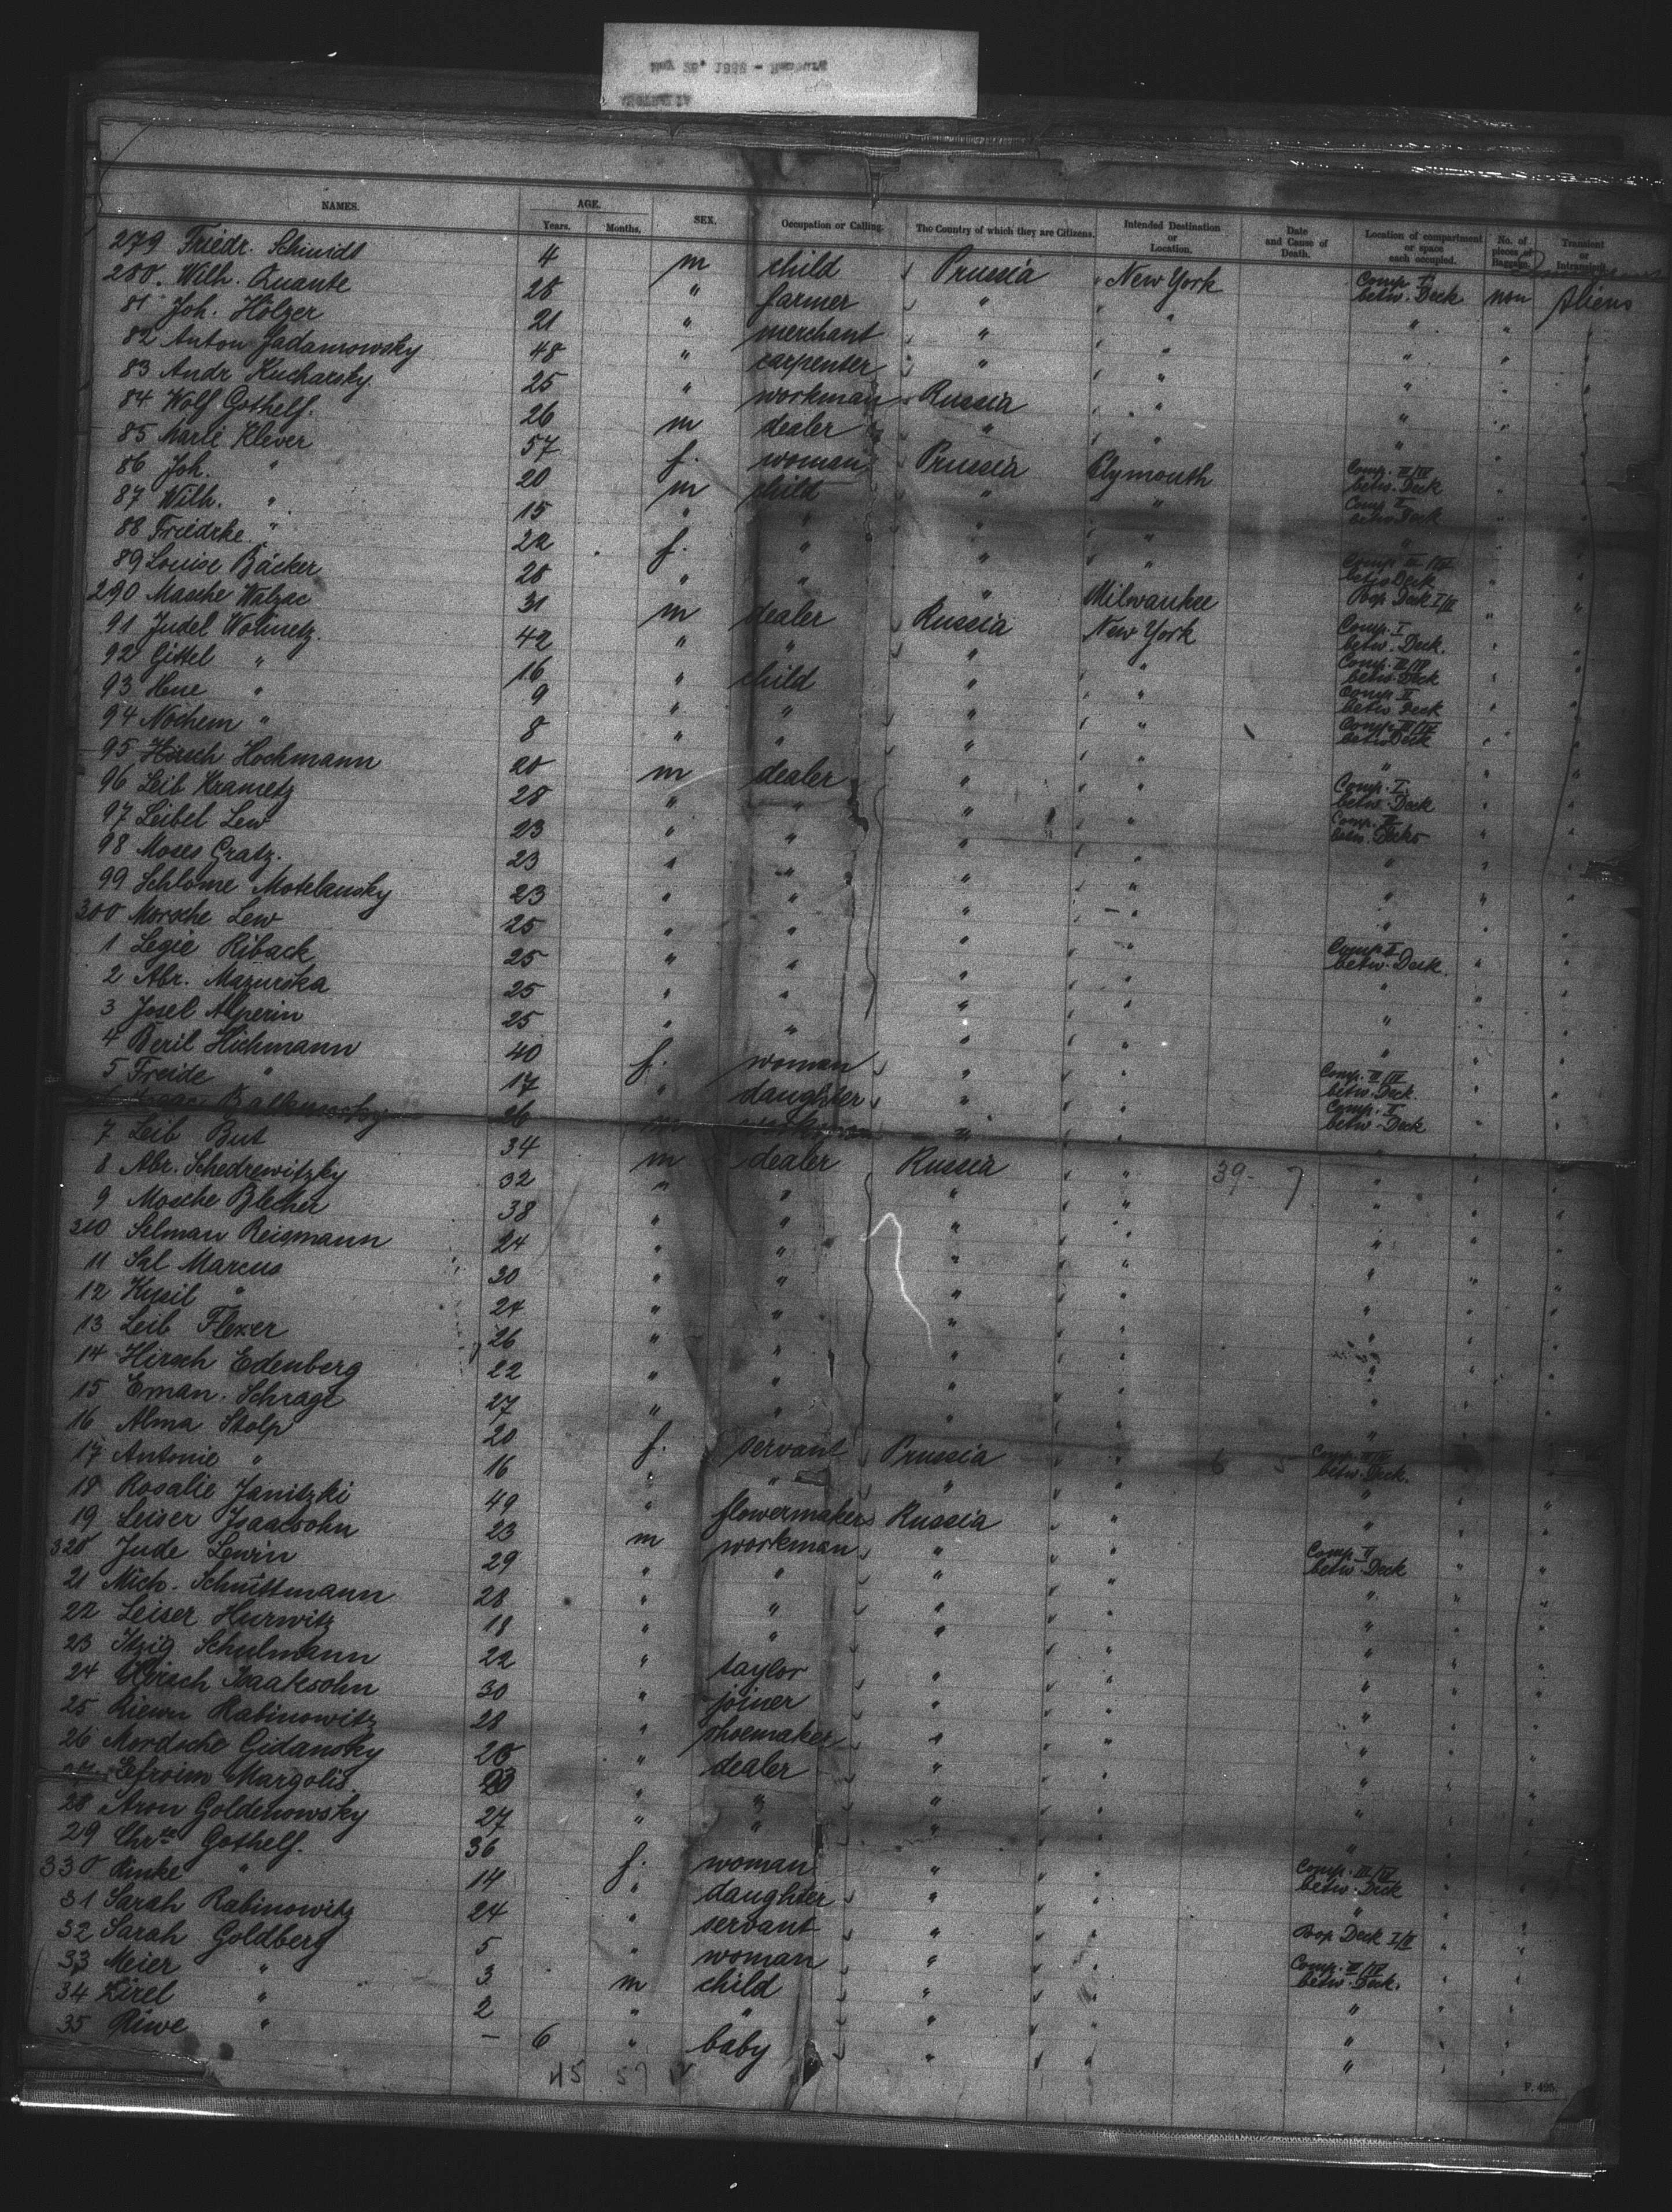 NAMES. AGE. SEX. Occupation or Calling. The Country of which they are Citizens. Intended Destination or Location. Date and Cause of Death. Location of compartment or space each occupied. No. of pieces of Baggage. Transient or
Years. Months.
279 Friedr. Schmidt 4 m child Prussia New York Comp. I betw. Deck non Aliens
280. Wilh. Quante 28 " farmer " " " " "
81 Joh. Hölzer 21 " merchant " " " "
82 Anton Jadamrowsky 48 " carpenter " " " "
83 Andr Kucharsky 25 " workman Russia " " "
84 Wolf Gothelf. 26 m dealer " " " "
85 Marie Klever 57 f. woman Prussia Plymouth Comp. III/IV betw. Deck
86 Joh. " 20 m child " " Comp II betw Deck
87 Wilh. " 15 " " " " "
88 Friedrke " 22 f. " " " Comp III/IV betw Deck
89 Louise Bäcker 28 " " " Milwaukee Poop Deck I/II
290 Masche Walzac 31 m dealer Russia New York Comp. I betw. Deck.
91 Judel Wolinetz. 42 " " " " Comp. III/IV betw. Deck
92 Gittel " 16 " child " " Comp II betw Deck
93 Hene " 9 " " " " Comp. III/IV betw Deck
94 Nochem " 8 " " " " "
95 Hirsch Hochmann 20 m dealer " " Comp. I. betw. Deck
96 Leib Krametz 28 " " " " Comp. II betw. Decks
97 Leibel Lew 23 " " " " "
98 Moses Gratz. 23 " " " " "
99 Schlome Motelansky 23 " " " " "
300 Morsche Lew 25 " " " " Comp II betw. Deck.
1 Legie Riback 25 " " " " "
2 Abr. Mazurska 25 " " " " "
3 Josel Alperin 25 " " " " "
4 Beril Hichmann 40 f. woman " " Comp. III/IV betw. Deck.
5 Freide " 17 " daughter " " Comp. I betw. Deck
26 m workman " "
7 Leib But 34 m dealer Russia " 39- 7 "
8 Abr. Schedrewitzky 32 " " " " "
9 Mosche Blecher 38 " " " " "
310 Selman Reigmann 24 " " " " "
11 Sal Marcus 30 " " " " "
12 Kusil " 24 " " " " "
13 Leib Flexer 26 " " " " "
14 Hirsch Edenberg 22 " " " " "
15 Eman. Schrage 27 " " " " "
16 Alma Stolp 20 f. servant Prussia " 6 5 Comp. III/IV betw. Deck.
17 Antonie " 16 " " " " "
18 Rosalie Janitzki 49 " flowermaker Russia " "
19 Leiser Isaacsohn 23 m workman " " Comp. II betw. Deck
320 Jude Lewin 29 " " " " "
21 Mich. Schnittmann 28 " " " " "
22 Leiser Hurwitz 18 " " " " "
23 Itzig Schulmann 22 " taylor " " "
24 Hirsch Isaaksohn 30 " joiner " " "
25 Riewn Rabinowitz 28 " shoemaker " " "
26 Mordsche Gidansky 25 " dealer " " "
27 Efroim Margolis. " " " " "
28 Aron Goldenowsky 27 " " " " "
29 Chrte Gothelf. 36 f. woman " " Comp. III/IV betw. Deck
330 Rinke " 14 " daughter " " "
31 Sarah Rabinowitz 24 " servant " " Poop Deck I/II
32 Sarah Goldberg 5 " woman " " Comp. III/IV betw. Deck.
33 Meier " 3 m child " " "
34 Zirel " 2 " " " " "
35 Riwe " – 6 " baby " " "
45 57